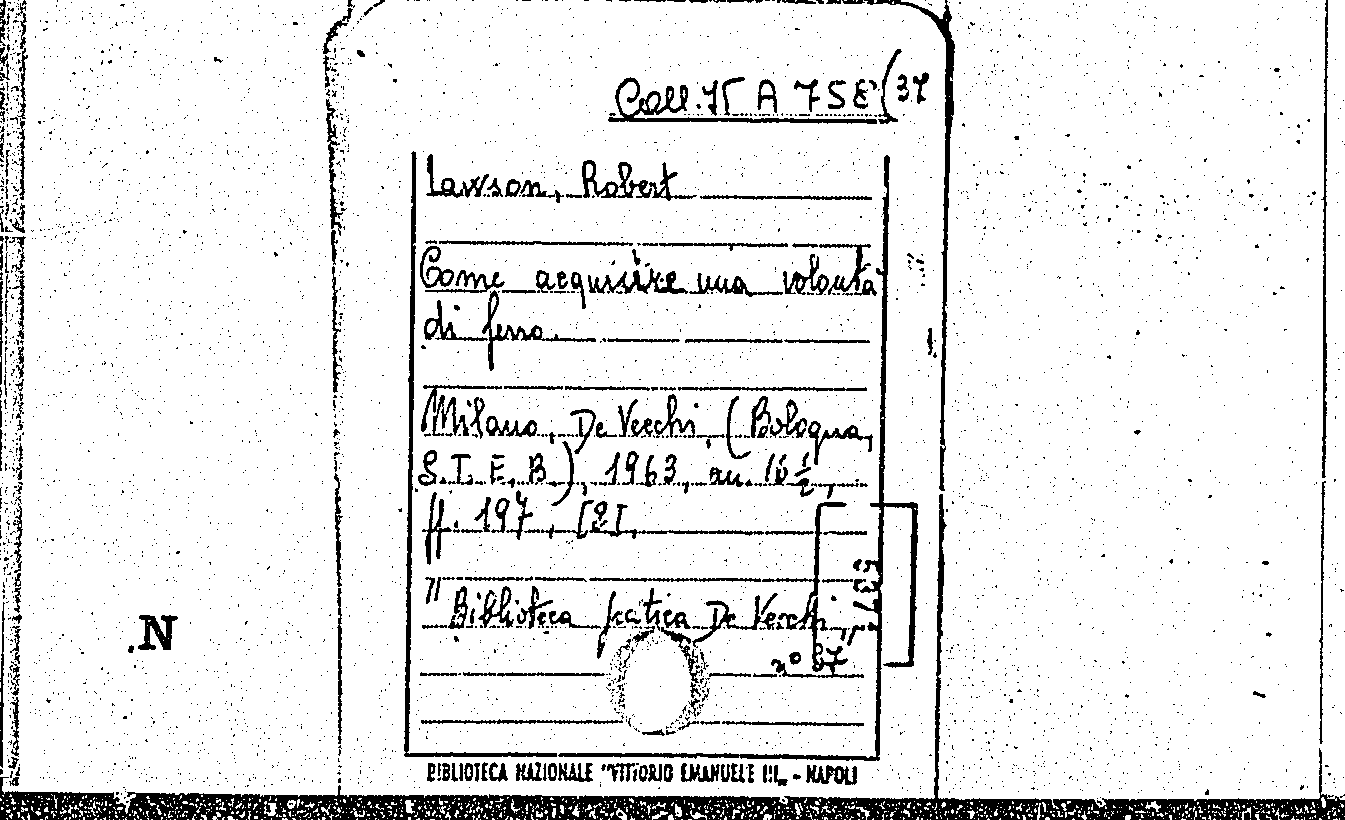 Coll. 75 A 758 (37
Lawson, Robert
Come acquisire una volontà
di ferro.
Milano, De Vecchi, (Bologna,
S.T.E.B.), 1963, in. 16 ½,
pp. 197, [2].
"Biblioteca pratica De Vecchi,,
n° 87
537
.N
BIBLIOTECA NAZIONALE "VITTORIO EMANUELE III„ - NAPOLI